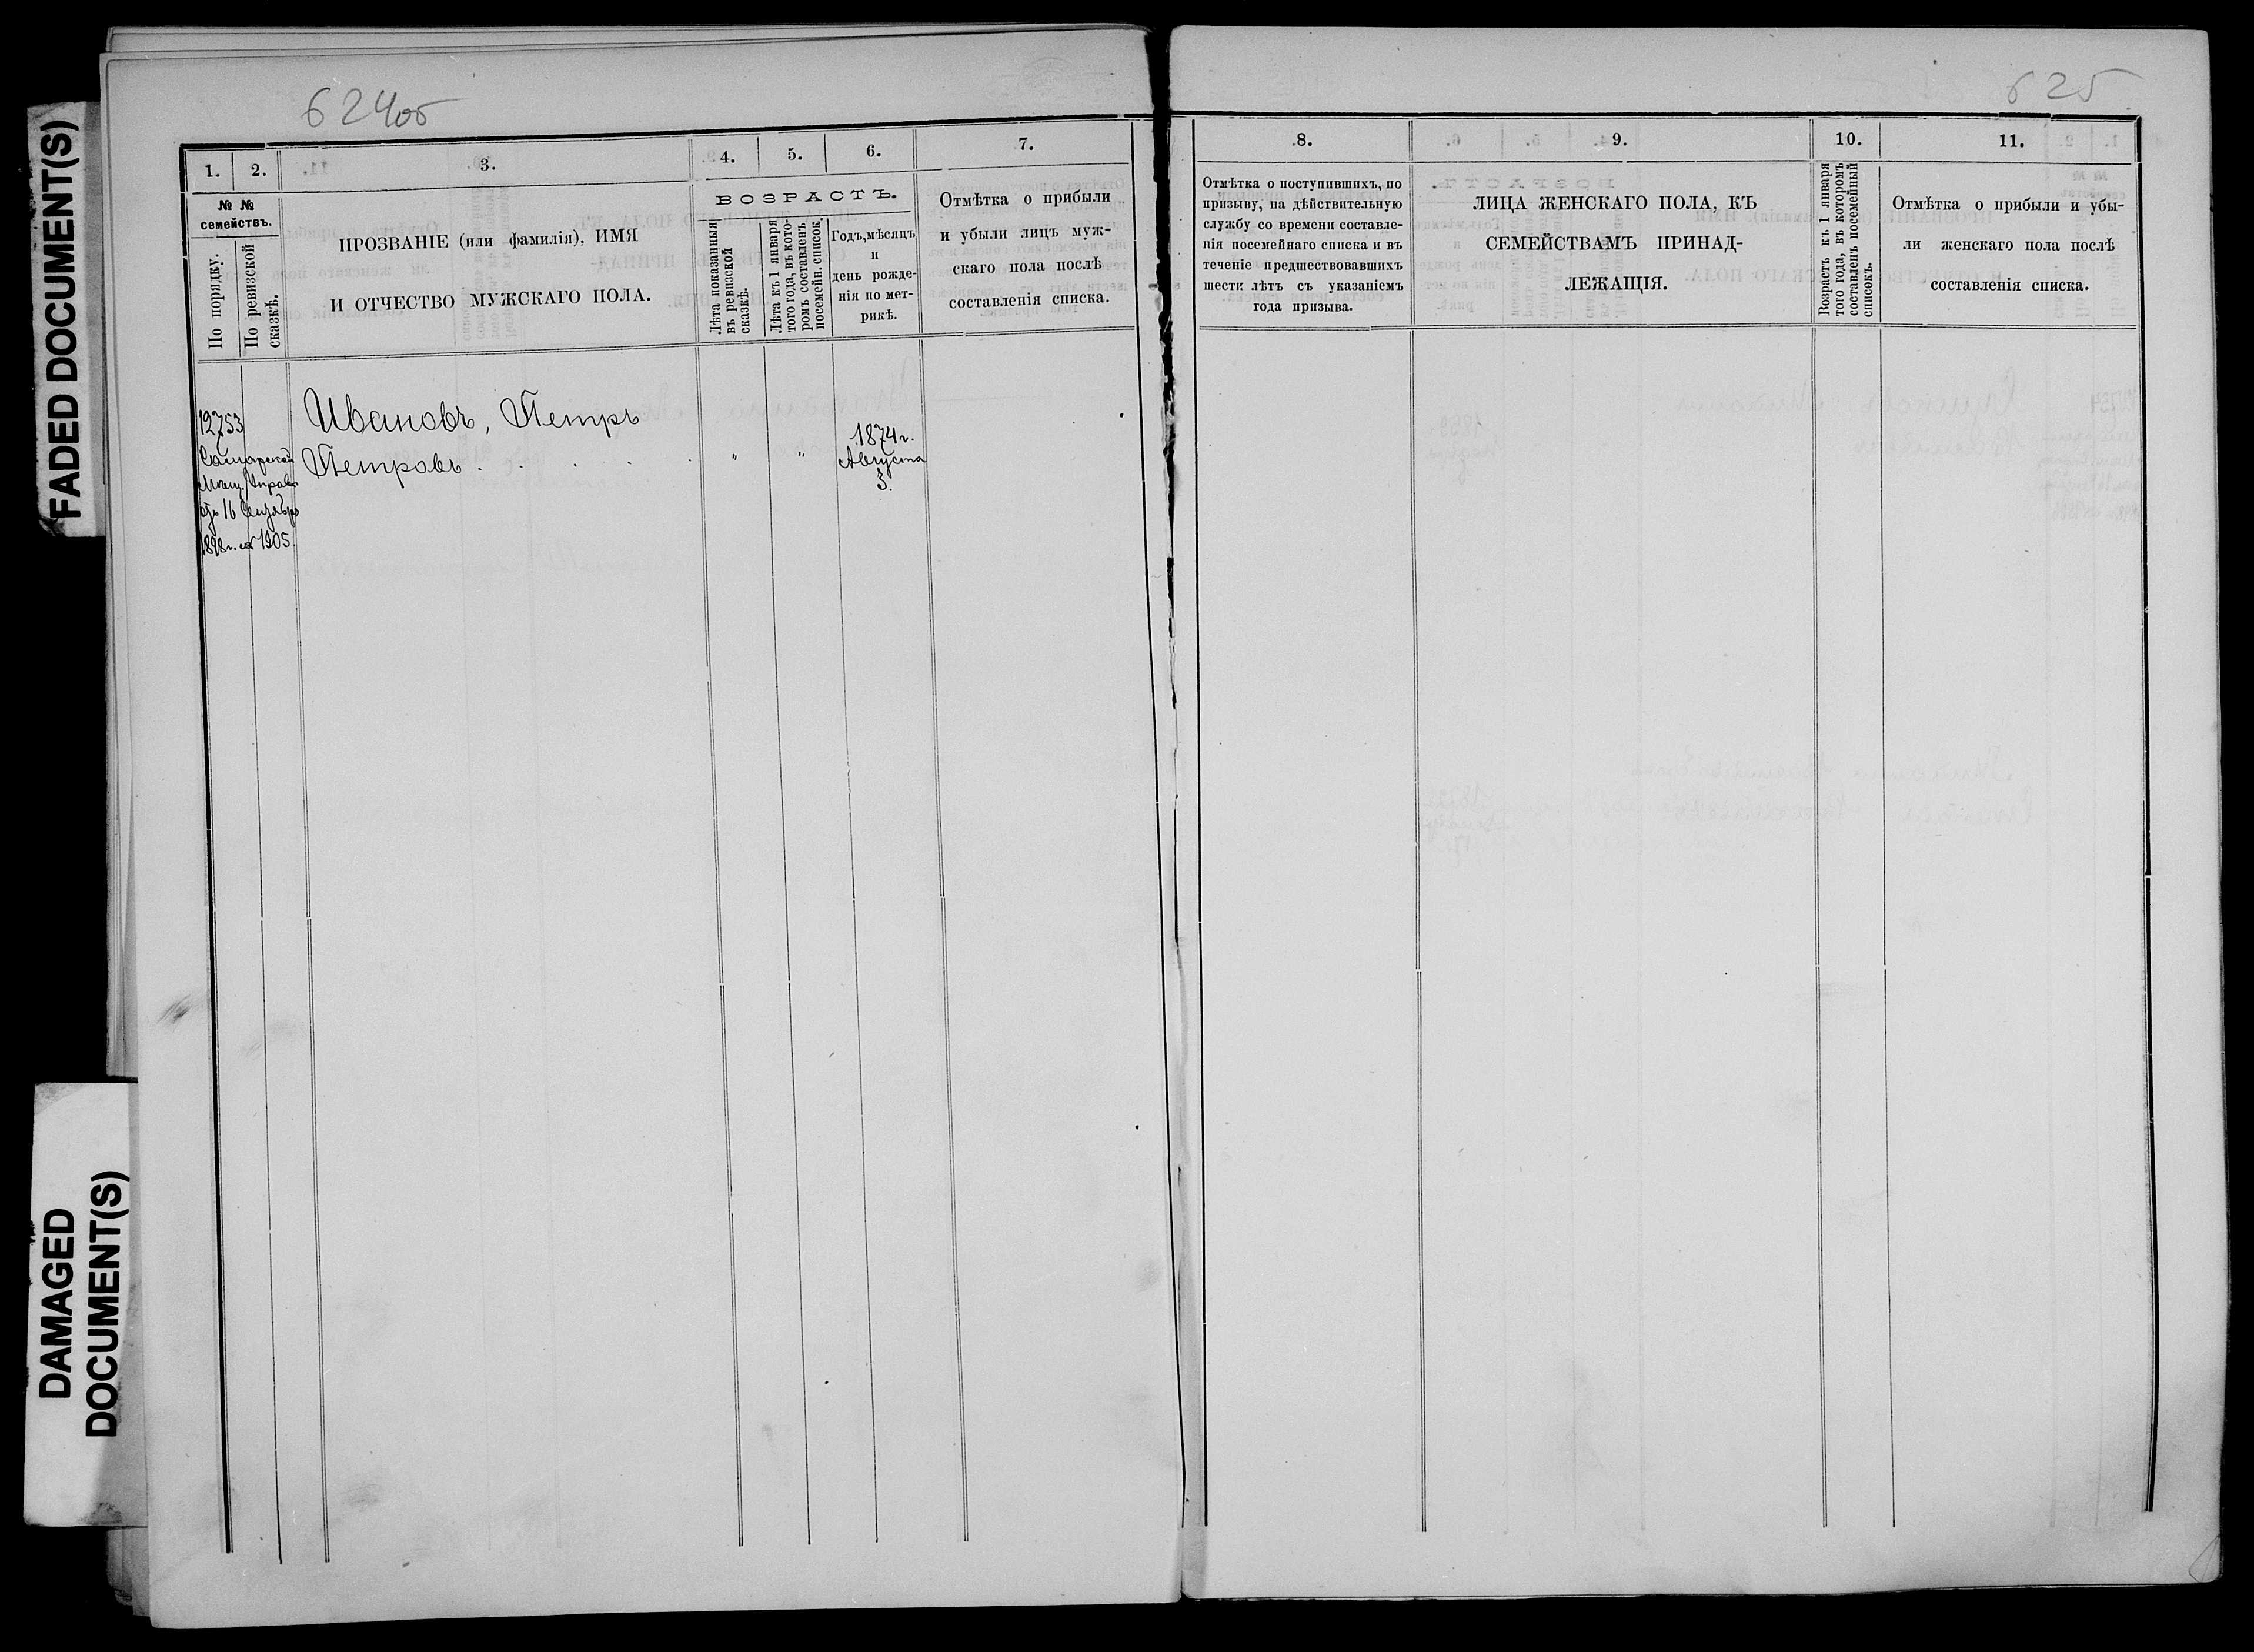 FADED DOCUMENT(S)
DAMAGED
DOCUMENT(S)
624об
1. 2. 3. 4. 5. 6. 7.
№ №
семействъ.
По порядку.
По ревизской
сказкѣ.
ПРОЗВАНІЕ (или фамилія), ИМЯ
И ОТЧЕСТВО МУЖСКАГО ПОЛА.
ВОЗРАСТЪ.
Лѣта показанныя
въ ревизской
сказкѣ.
Лѣта къ 1 января
того года, въ кото-
ромъ составленъ
посемейн. список.
Годъ, мѣсяцъ
и
день рожде-
нія по мет-
рикѣ.
Отмѣтка о прибыли
и убыли лицъ муж-
скаго пола послѣ
составленія списка.
12753
Самарской
Мѣщ. Управы
отъ 16 Сентября
1898 г. № 1905.
Ивановъ, Петръ
Петровъ . . . . .
" "
1874 г.
Августа
3.
625
8. 9. 10. 11.
Отмѣтка о поступившихъ, по
призыву, на дѣйствительную
службу со времени составле-
нія посемейнаго списка и въ
теченіе предшествовавшихъ
шести лѣтъ съ указаніемъ
года призыва.
ЛИЦА ЖЕНСКАГО ПОЛА, КЪ
СЕМЕЙСТВАМЪ ПРИНАД-
ЛЕЖАЩІЯ.
Возрастъ къ 1 января
того года, въ которомъ
составленъ посемейный
списокъ.
Отмѣтка о прибыли и убы-
ли женскаго пола послѣ
составленія списка.